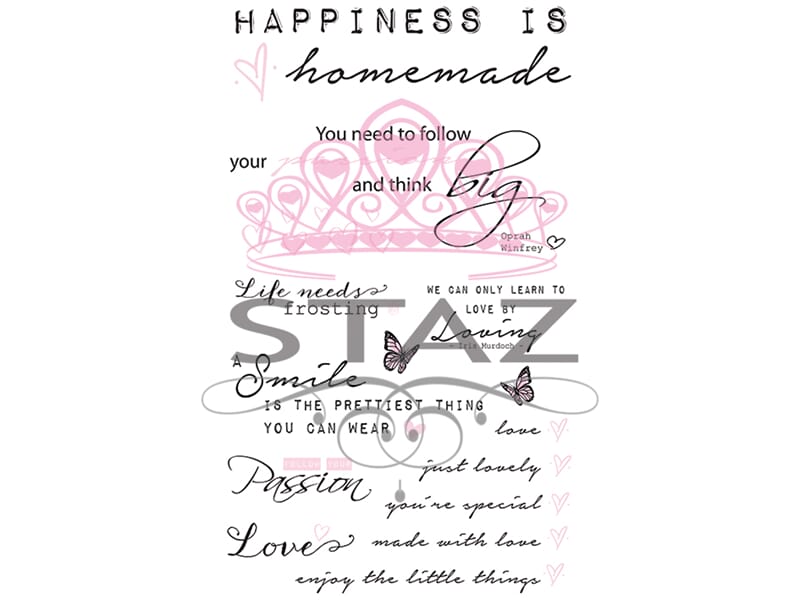 HAPPINESS IS
homemade
You need to follow
your passion
and think big
Oprah
Winfrey
Life needs
frosting
WE CAN ONLY LEARN TO
LOVE BY
Loving
- Iris Murdoch -
STAZ
A Smile
IS THE PRETTIEST THING
YOU CAN WEAR
love
just lovely
FOLLOW YOUR
Passion
you're special
Love
made with love
enjoy the little things